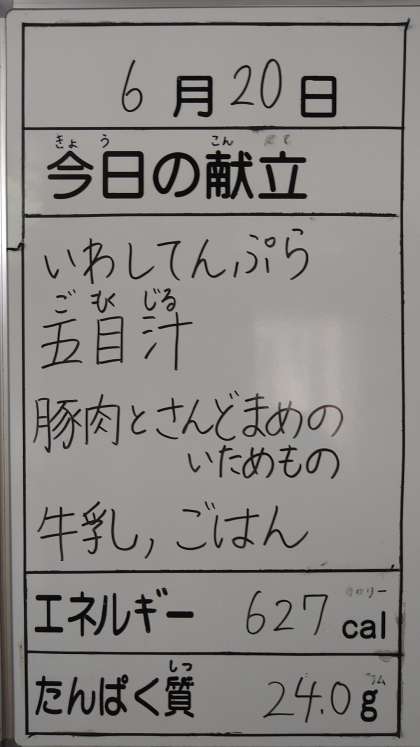 6月20日
きょう こん だて
今日の献立
いわしてんぷら
ご もく じる
五目汁
豚肉とさんどまめの
いためもの
牛乳, ごはん
カロリー
エネルギー 627 cal
しつ
たんぱく質 24.0g